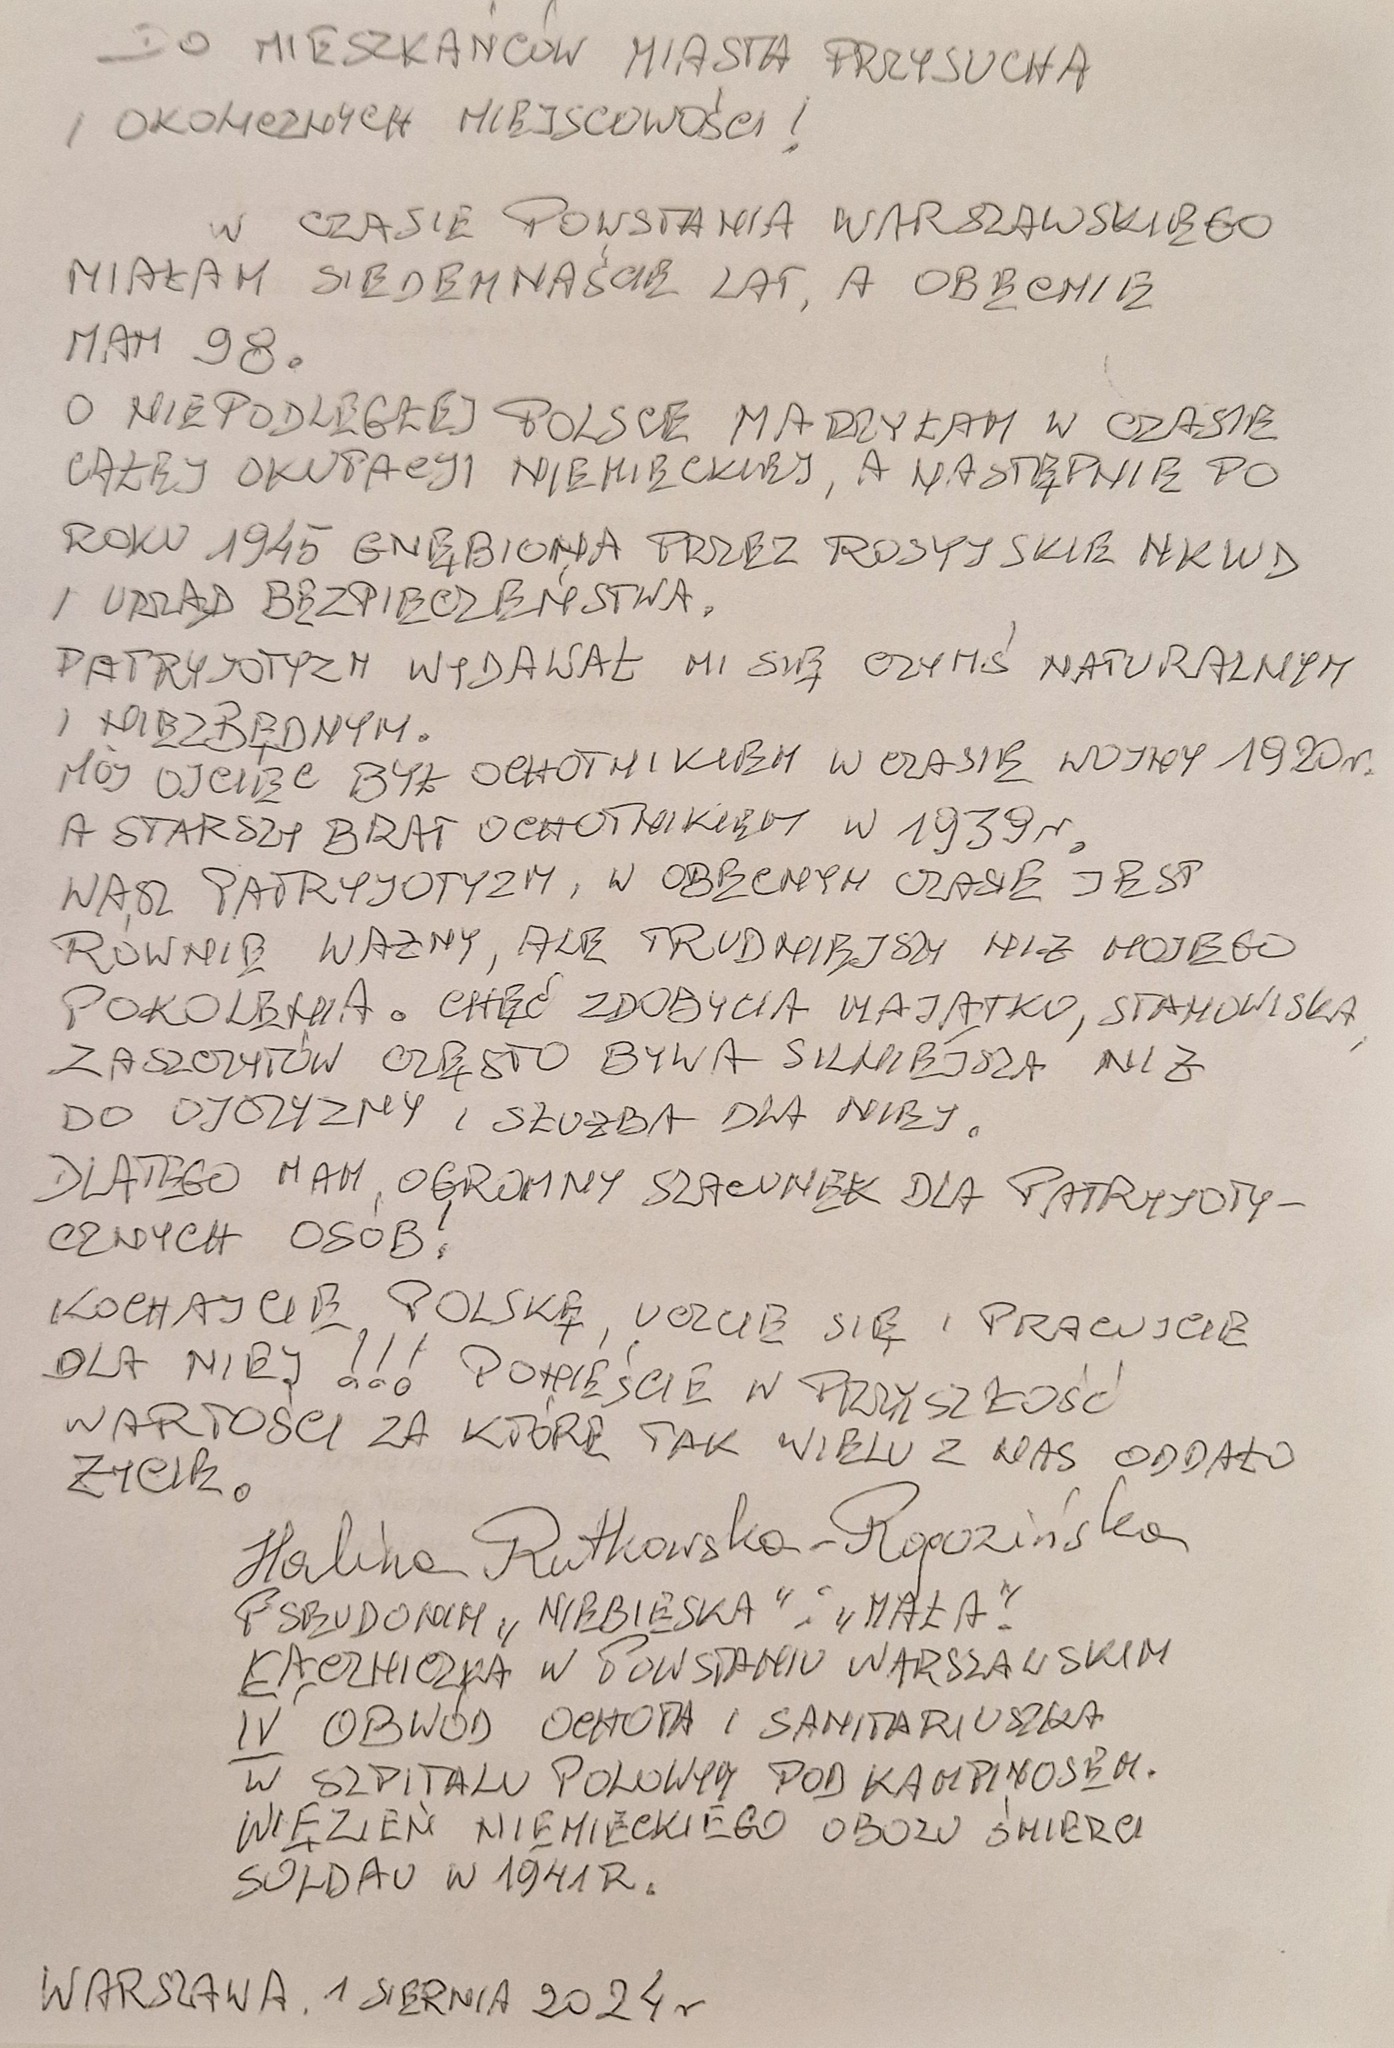 DO MIESZKAŃCÓW MIASTA PRZYSUCHA
I OKOLICZNYCH MIEJSCOWOŚCI!
W CZASIE POWSTANIA WARSZAWSKIEGO
MIAŁAM SIEDEMNAŚCIE LAT, A OBECNIE
MAM 98.
O NIEPODLEGŁEJ POLSCE MARZYŁAM W CZASIE
CAŁEJ OKUPACJI NIEMIECKIEJ, A NASTĘPNIE PO
ROKU 1945 GNĘBIONA PRZEZ ROSYJSKIE NKWD
I URZĄD BEZPIECZEŃSTWA.
PATRYJOTYZM WYDAWAŁ MI SIĘ CZYMŚ NATURALNYM
I NIEZBĘDNYM.
MÓJ OJCIEC BYŁ OCHOTNIKIEM W CZASIE WOJNY 1920r.
A STARSZY BRAT OCHOTNIKIEM W 1939r.
WASZ PATRYJOTYZM, W OBECNYM CZASIE JEST
RÓWNIE WAŻNY, ALE TRUDNIEJSZY NIŻ MOJEGO
POKOLENIA. CHĘĆ ZDOBYCIA MAJĄTKU, STANOWISKA,
ZASZCZYTÓW CZĘSTO BYWA SILNIEJSZA NIŻ
DO OJCZYZNY I SŁUŻBA DLA NIEJ.
DLATEGO MAM OGROMNY SZACUNEK DLA PATRYJOTY-
CZNYCH OSÓB!
KOCHAJCIE POLSKĘ, UCZCIE SIĘ I PRACUJCIE
DLA NIEJ!!! PONIEŚCIE W PRZYSZŁOŚĆ
WARTOŚCI ZA KTÓRE TAK WIELU Z NAS ODDAŁO
ŻYCIE.
Halina Rutkowska-Rogozińska
PSEUDONIM „NIEBIESKA" i „MAŁA".
ŁĄCZNICZKA W POWSTANIU WARSZAWSKIM
IV OBWÓD OCHOTA I SANITARIUSZKA
W SZPITALU POLOWYM POD KAMPINOSEM.
WIĘZIEŃ NIEMIECKIEGO OBOZU ŚMIERCI
SOLDAU W 1941R.
WARSZAWA. 1 SIERNIA 2024r